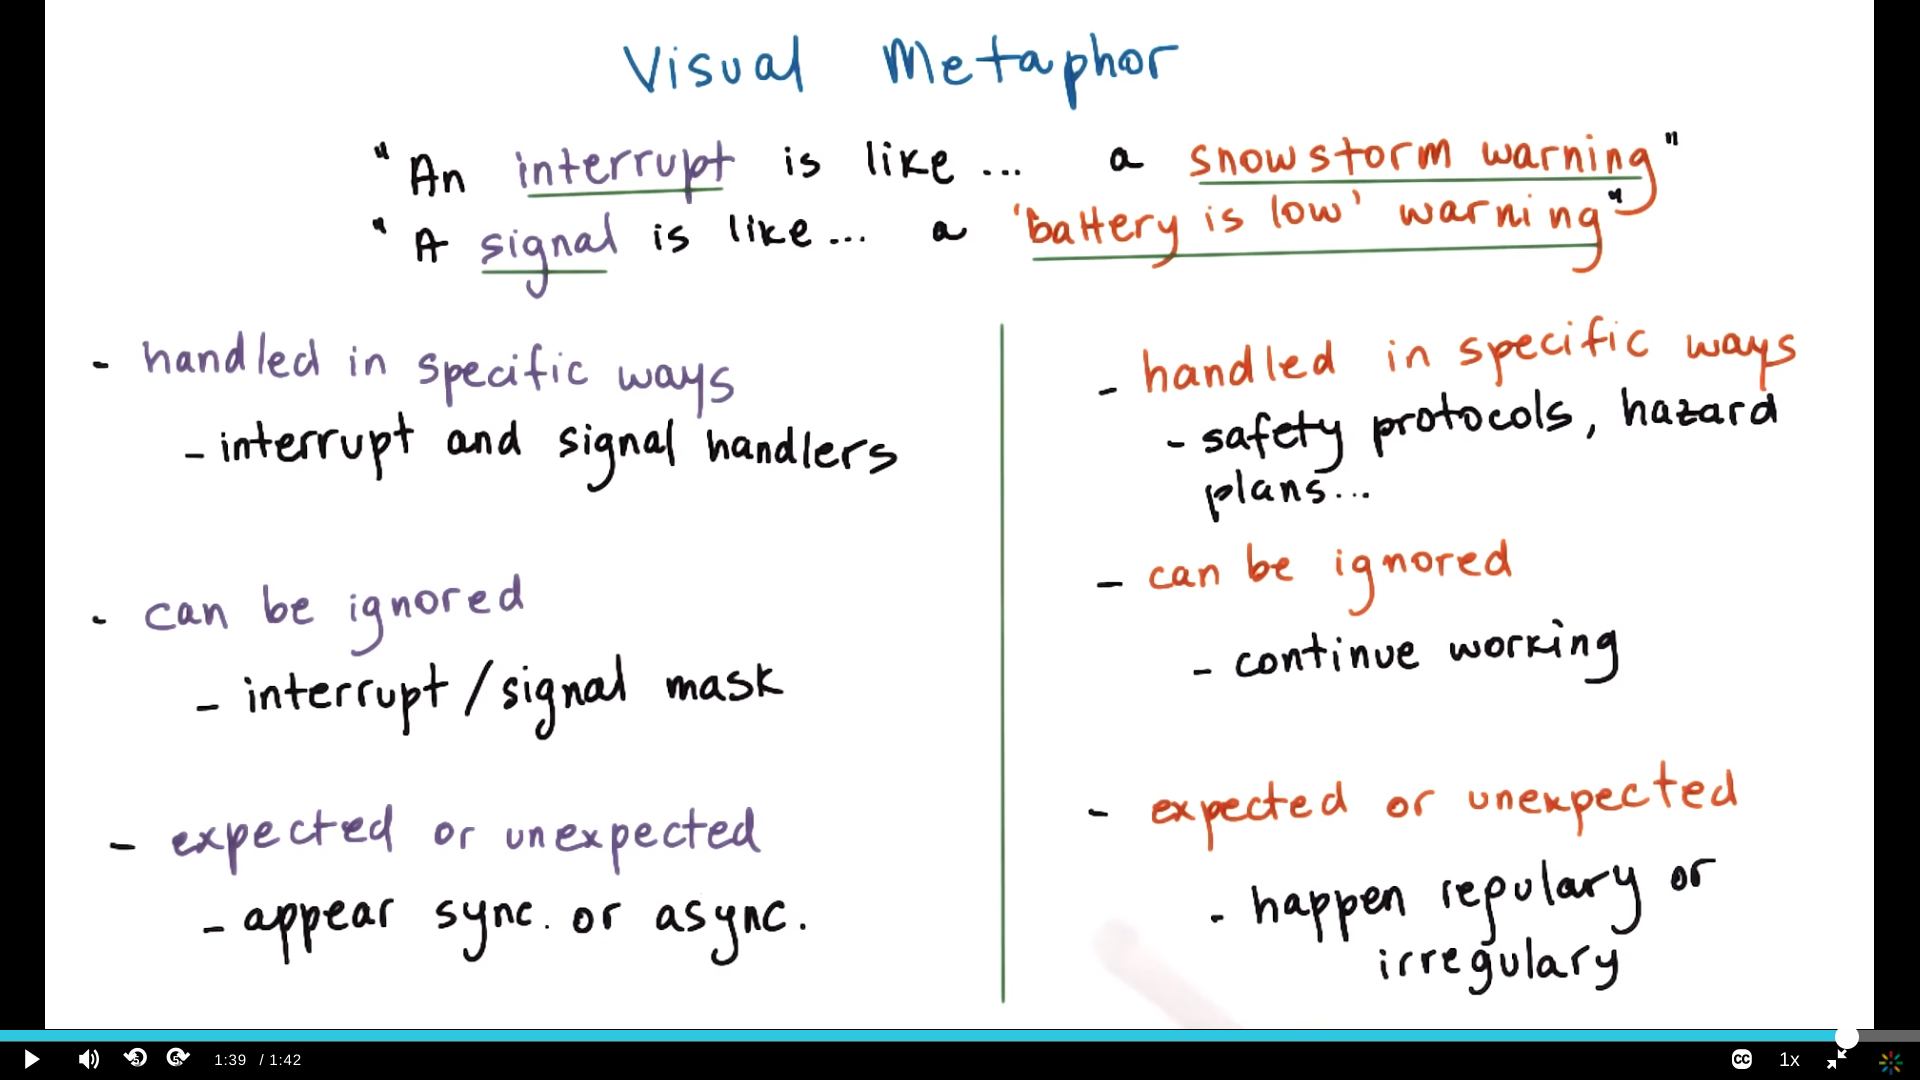 Visual Metaphor
"An interrupt is like... a snowstorm warning"
"A signal is like... a 'battery is low' warning"
- handled in specific ways
- interrupt and signal handlers
- can be ignored
- interrupt/signal mask
- expected or unexpected
- appear sync. or async.
- handled in specific ways
- safety protocols, hazard
plans...
- can be ignored
- continue working
- expected or unexpected
- happen regulary or
irregulary
1:39 / 1:42
CC
1x